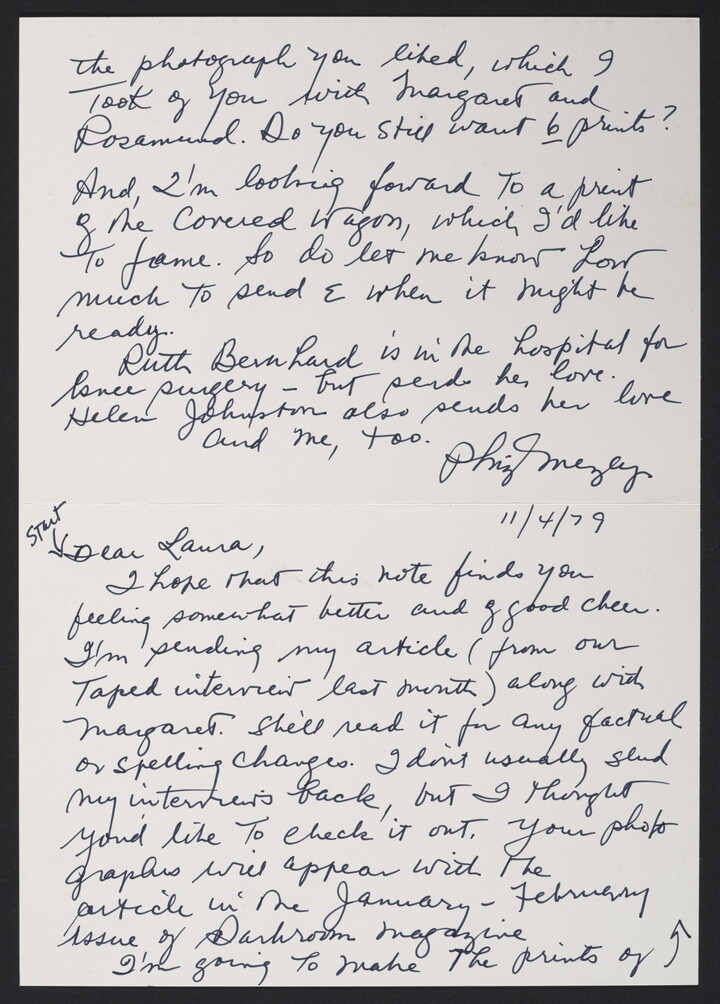 Start
11/4/79
Dear Laura,
I hope that this note finds you
feeling somewhat better and of good cheer.
I'm sending my article (from our
Taped interview last month) along with
Margaret. She'll read it for any factual
or spelling changes. I don't usually send
my interviews back, but I thought
you'd like to check it out. Your photo
graphs will appear with the
article in the January - February
issue of Darkroom magazine
I'm going to make the prints of
the photograph you liked, which I
Took of you with Margaret and
Rosamund. Do you still want 6 prints?
And, I'm looking forward to a print
of the Covered Wagon, which I'd like
to frame. So do let me know how
much to send & when it might be
ready.
Ruth Bernhard is in the hospital for
knee surgery - but sends her love.
Helen Johnston also sends her love
and me, too.